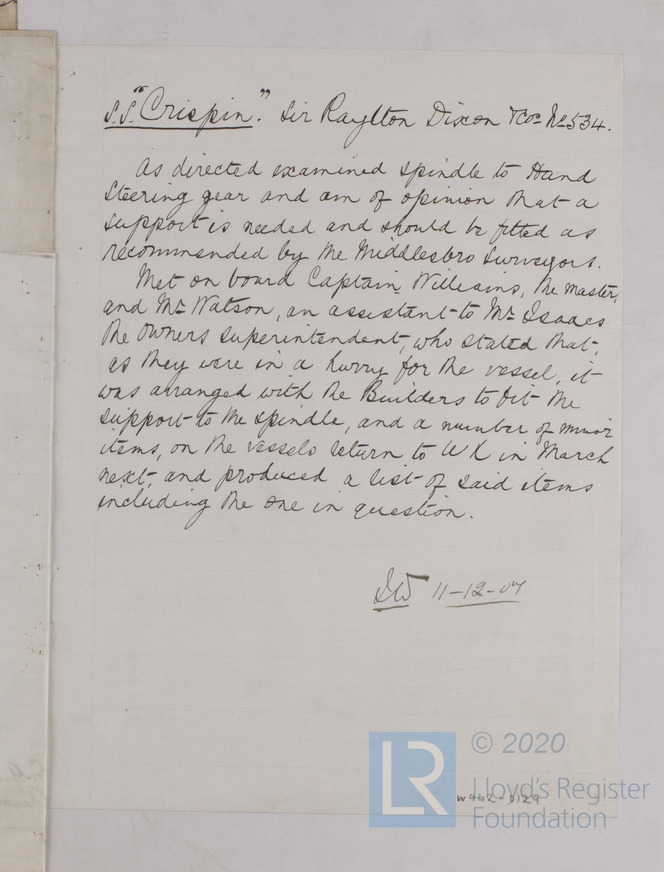 S.S. "Crispin." Sir Raylton Dixon & Cos No 534.
As directed examined spindle to Hand
Steering gear and am of opinion that a
support is needed and should be fitted as
recommended by the Middlesbro Surveyors.
Met on board Captain Williams, the master,
and Mr Watson, an assistant to Mr Isaacs
the Owners Superintendent, who stated that,
as they were in a hurry for the vessel, it
was arranged with the Builders to fit the
support to the spindle, and a number of minor
items, on the vessels return to U K in March
next, and produced a list of said items
including the one in question.
11-12-07
LR
© 2020
Lloyd's Register
Foundation
W942-0129